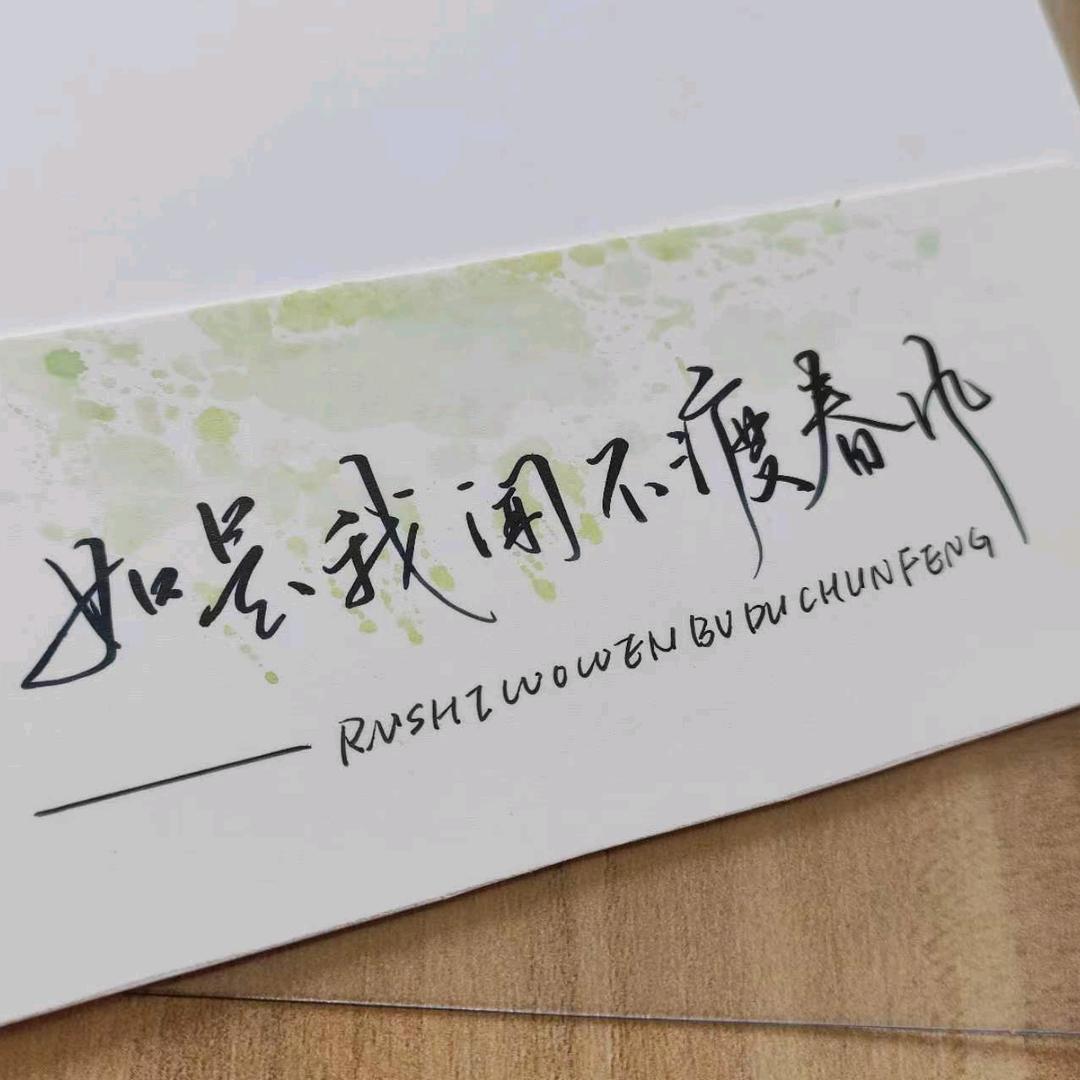 如是我闻不渡春风
——RUSHI WOWEN BUDU CHUNFENG